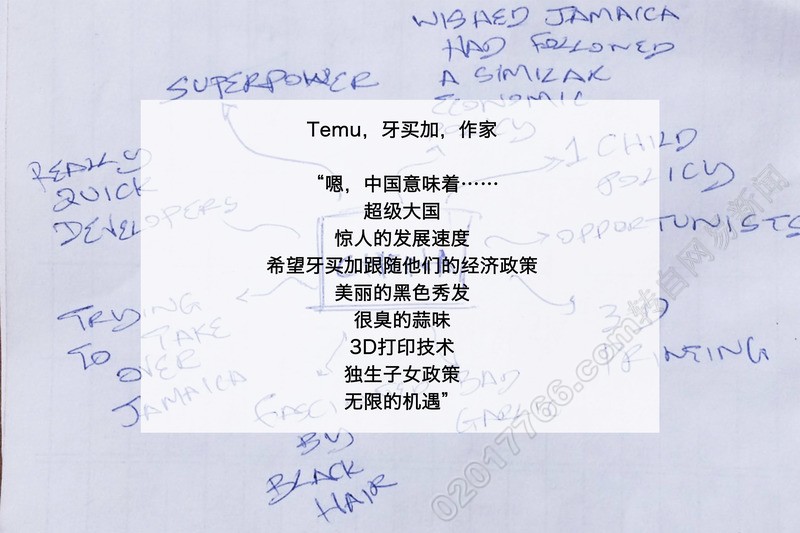 WISHED JAMAICA
HAD FOLLOWED
A SIMILAR
ECONOMIC
SUPERPOWER
Temu，牙买加，作家
“嗯，中国意味着……
超级大国
惊人的发展速度
希望牙买加跟随他们的经济政策
美丽的黑色秀发
很臭的蒜味
3D打印技术
独生子女政策
无限的机遇”
REALLY
QUICK
DEVELOPERS
1 CHILD
POLICY
OPPORTUNISTS
3D
PRINTING
TRYING
TO TAKE
OVER
JAMAICA
BAD
BY
BLACK
HAIR
02017766.com转自网易新闻